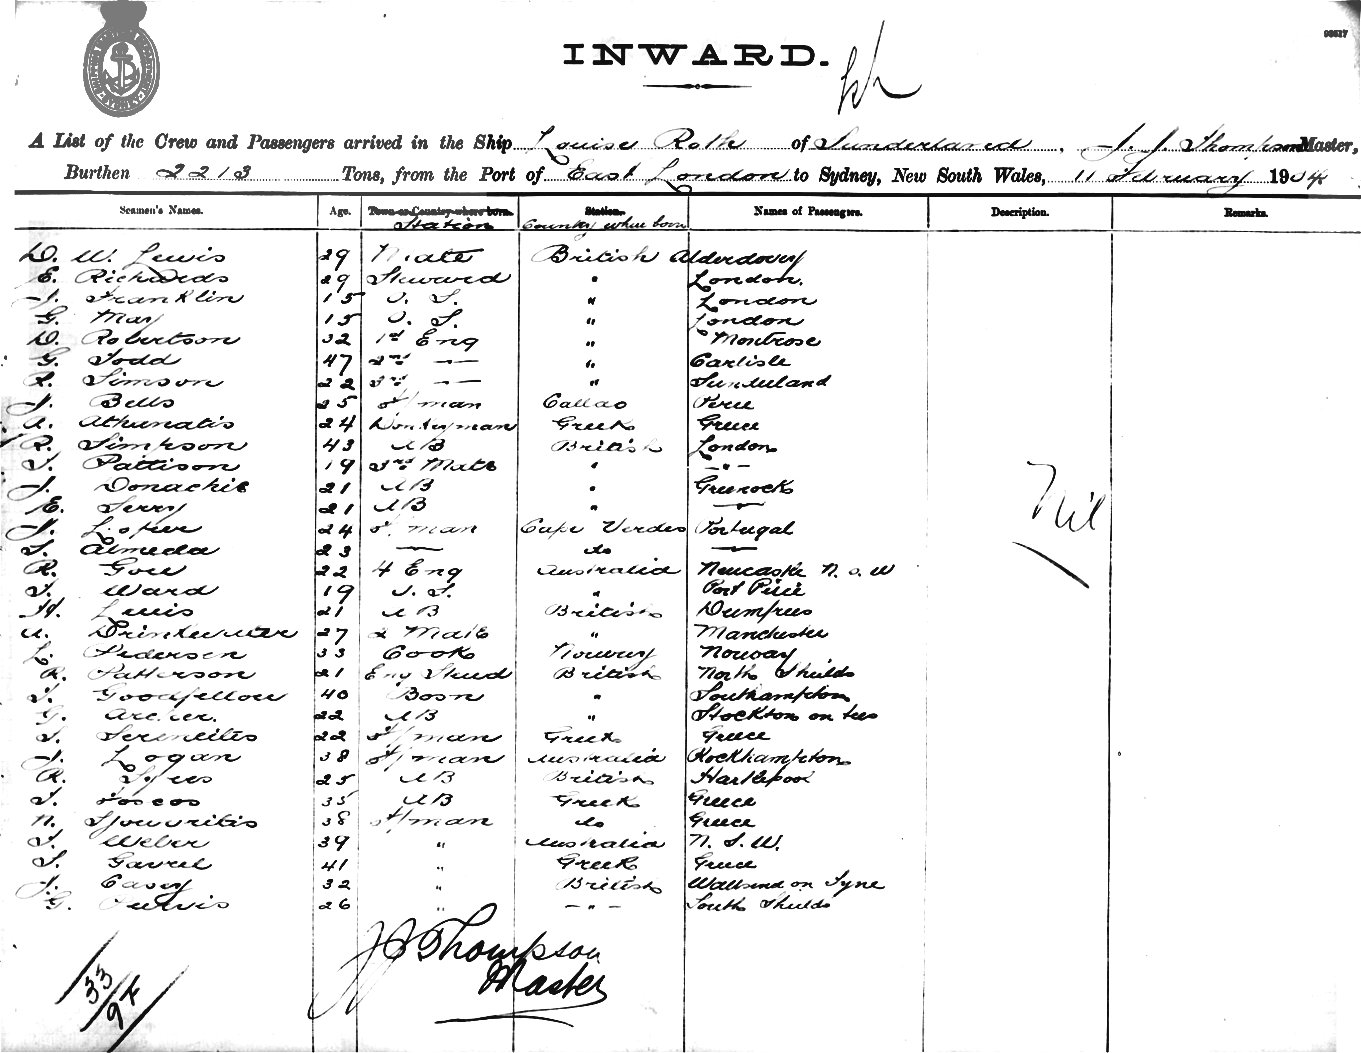 98527
INWARD.
A List of the Crew and Passengers arrived in the Ship Louise Roth of Sunderland, J. J. Thompson Master,
Burthen 2213 Tons, from the Port of East London to Sydney, New South Wales, 11 February 1904
Seamen's Names. Age. Town or Country where born. Station. Names of Passengers. Description. Remarks.
Station Country where born
D. W. Lewis 29 Mate British Alderdovey
E. Richards 29 Steward " London.
J. Franklin 15 O. S. " London
G. May 15 O. S. " London
D. Robertson 32 1st Eng " Montrose
G. Todd 47 2nd — " Carlisle
R. Simson 22 3rd — " Sunderland
J. Bells 25 F/man Callao Peru
A. Athunatis 24 Donkeyman Greek Greece
R. Simpson 43 AB British London
T. Pattison 19 3rd Mate " —"—
J. Donachie 21 AB " Greenock
E. Terry 21 AB " —
J. Loper 24 F/man Cape Verdes Portugal
S. Almeda 23 — do —
R. Goul 22 4 Eng Australia Newcastle N.S.W
T. Ward 19 O. S. " Port Pirie
H. Lewis 21 AB British Dumfries
A. Drinkwater 27 2 Mate " Manchester
L. Pedersen 33 Cook Norway Norway
R. Patterson 21 Eng Stwd British North Shields
T. Goodfellow 40 Bosn " Southampton
G. Archer. 22 AB " Stockton on tees
S. 22 F/man Greek Greece
J. Logan 38 F/man Australia Rockhampton
R. Sykes 25 AB British Hartlepool
T. Foscos 35 AB Greek Greece
N. 38 F/man do Greece
T. Weber 39 " Australia N. S. W.
S. Gavrel 41 " Greek Greece
J. Casey 32 " British Wallsend on Tyne
G. Purvis 26 " —"— South Shields
Nil
J J Thompson
Master
33
94